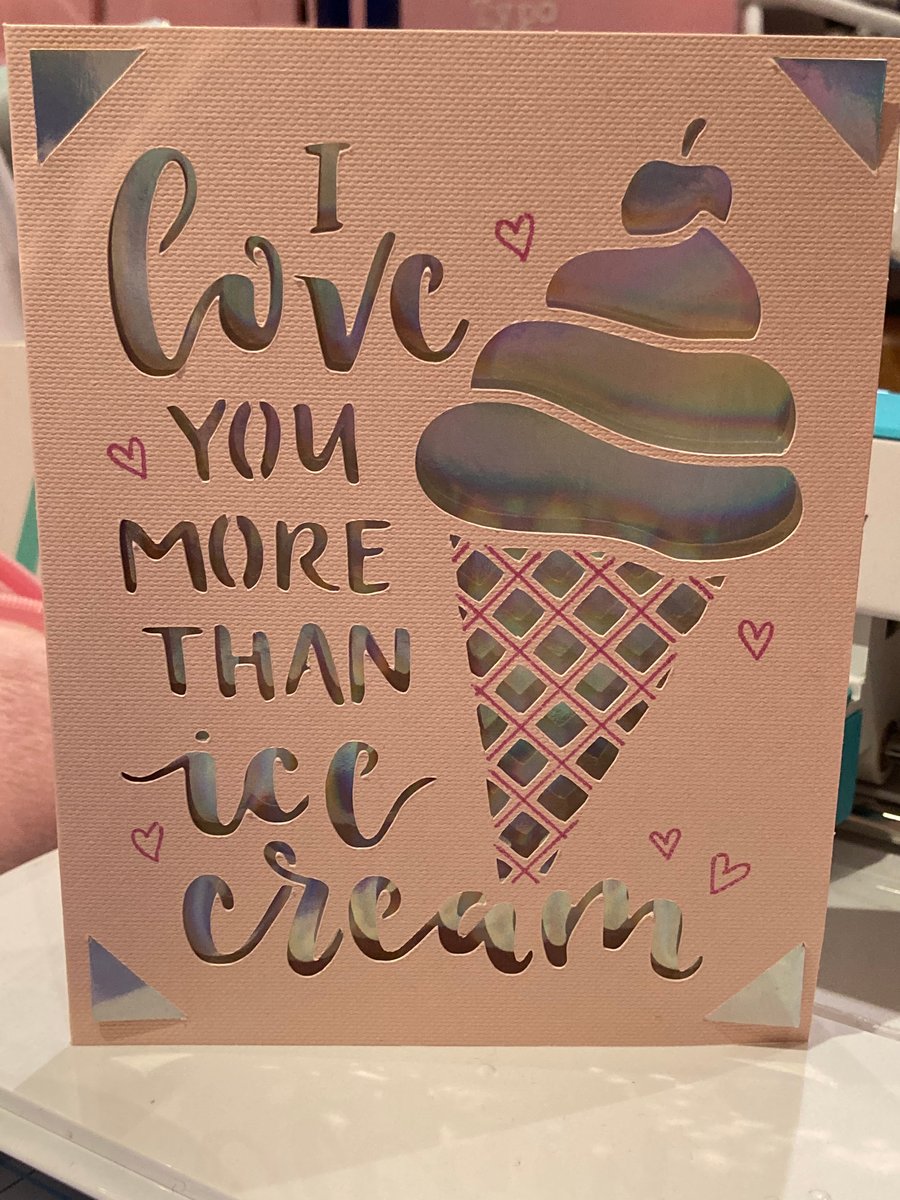 Typo
I
love
YOU
MORE
THAN
ice
cream